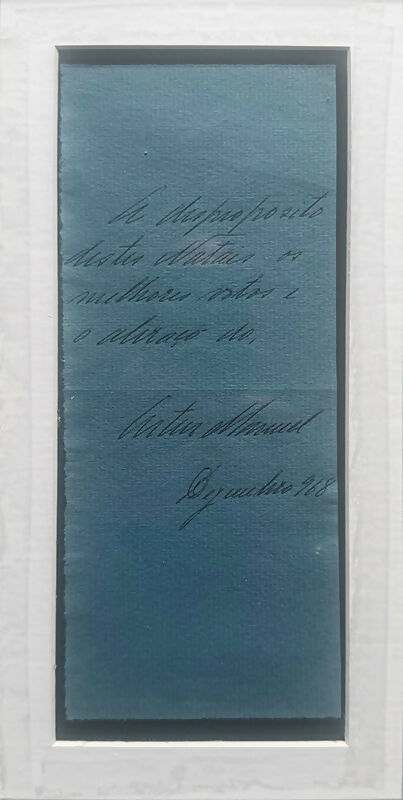 A despropósito
destes Natais os
melhores votos e
o abraço do,
Artur Manuel
Dezembro 968